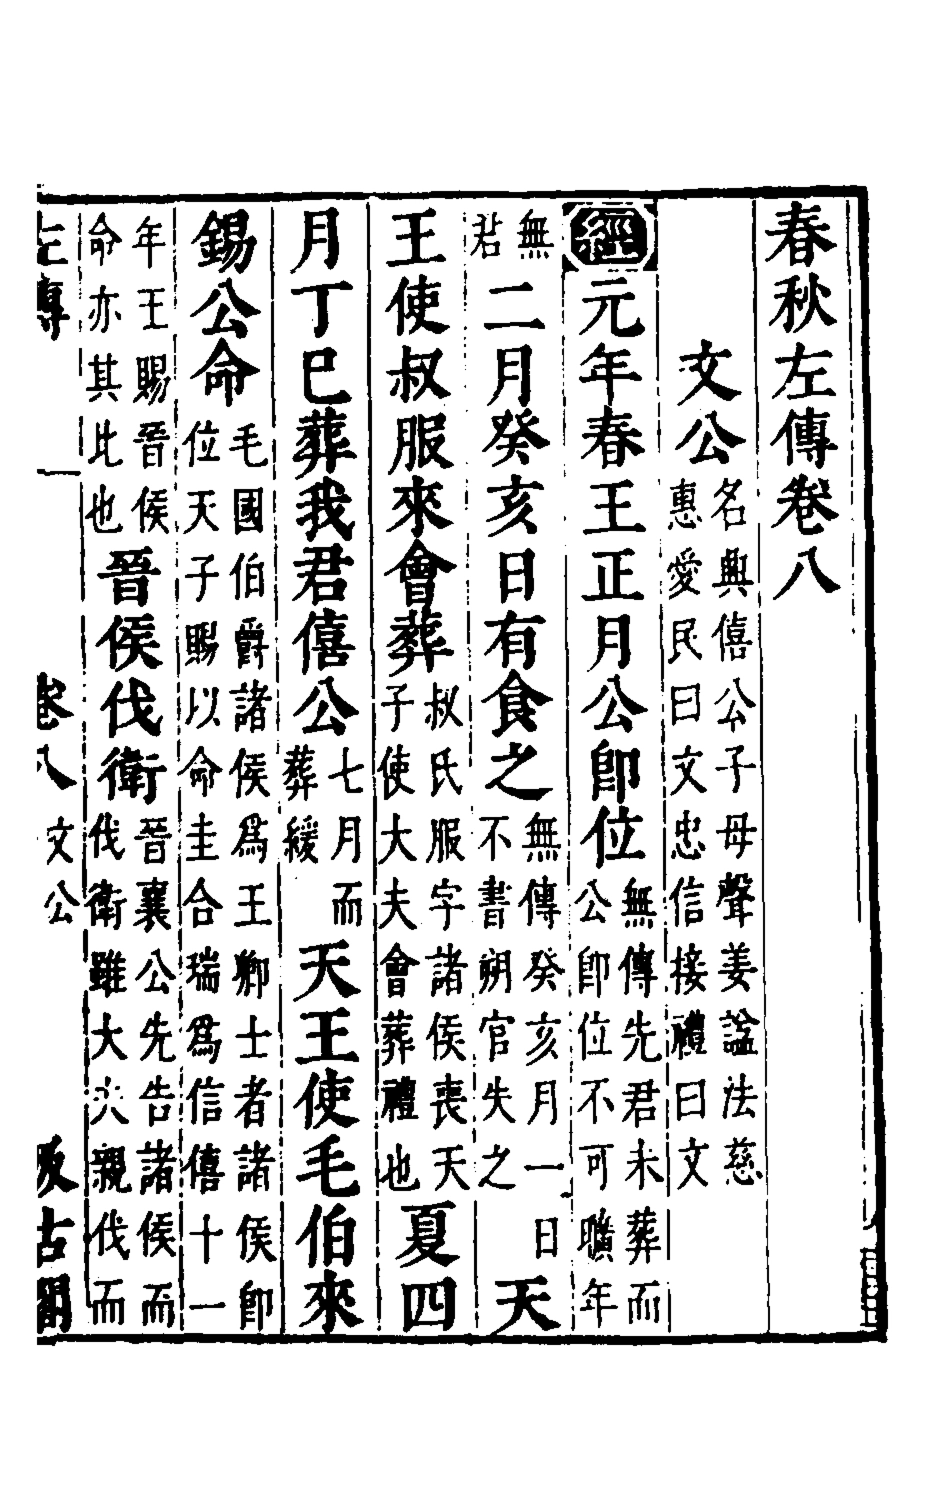 春秋左傳卷八
文公名興僖公子母聲姜諡法慈惠愛民曰文忠信接禮曰文
經元年春王正月公卽位無傳先君未葬而公卽位不可曠年
無君二月癸亥日有食之無傳癸亥月一日不書朔官失之天
王使叔服來會葬叔氏服字諸侯喪天子使大夫會葬禮也夏四
月丁巳葬我君僖公七月而葬緩天王使毛伯來
錫公命毛國伯爵諸侯爲王卿士者諸侯卽位天子賜以命圭合瑞爲信僖十一
年王賜晉侯命亦其比也晉侯伐衛晉襄公先告諸侯而伐衛雖大夫親伐而
左傳 卷八 文公 汲古閣